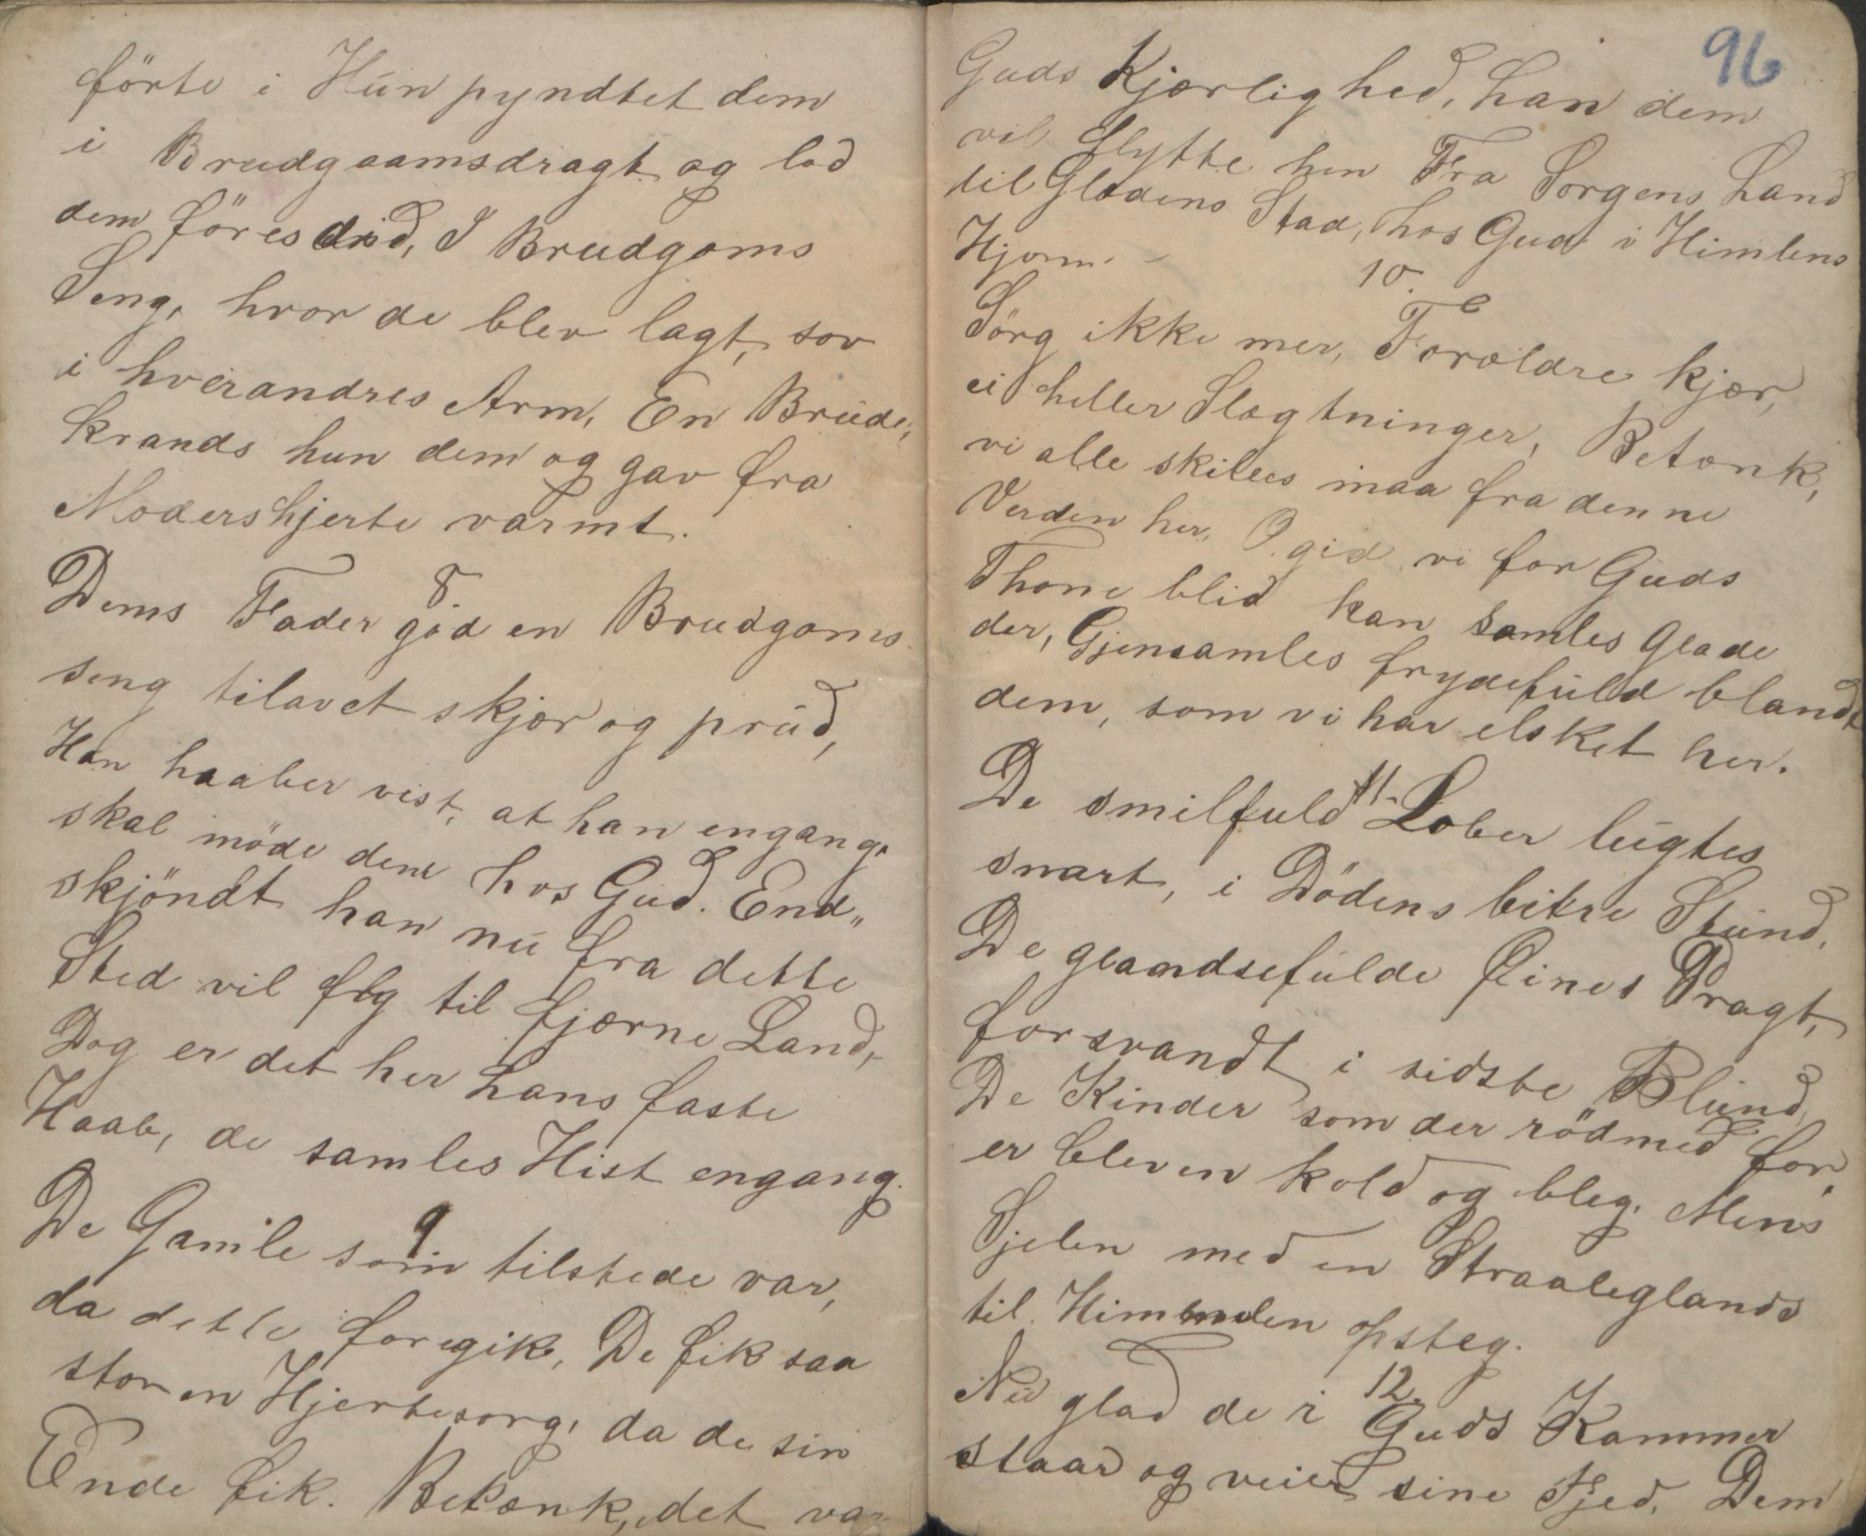 förte i Hun pyndtet dem
i Brudgaamsdragt og lod
dem föres did, I Brudgoms
Seng, hvor de blev lagt, sov
i hverandres Arm, En Brude,
krands hun dem og gav fra
Modershjerte varmt.
8
Dems Fader god en Brudgoms
seng tilavet skjær og prud,
Han haaber vist, at han engang,
skal möde dem hos Gud. End„
skjöndt han nu fra dette
Sted vil fly til fjærne Land,
Dog er det her hans faste
Haab, de samles Hist engang.
9
De Gamle som tilstede var,
da dette foregik, De fik saa
stor en Hjertesorg, da de sin
Ende fik. Betænk, det va
96
Guds Kjærlighed, han dem
vil flytte hen Fra Sorgens Land
til Glædens Stad, hos Gud i Himlens
Hjem.
10.
Sörg ikke mer, Foræeldre kjær,
ei heller Slægtninger, Betænk,
vi alle skilees maa fra denne
Verden her. O. gid vi for Guds
Thone blid kan samles glade
der, Gjensamles frydefuld blandt
dem, som vi har elsket her.
11.
De smilfuld Lober lugtes
snart, i Dödens bitre Stund,
De glandsefulde Eines Pragt,
forsvandt i sidste Blund,
De Kinder som der rödmed for,
er bleven kold og bleg. Mens
Sjelen med en Straaleglands
til Himmelen opsteg.
12.
Nu glad de i Guds Kammer
staar og veier sine Fjed, Dem